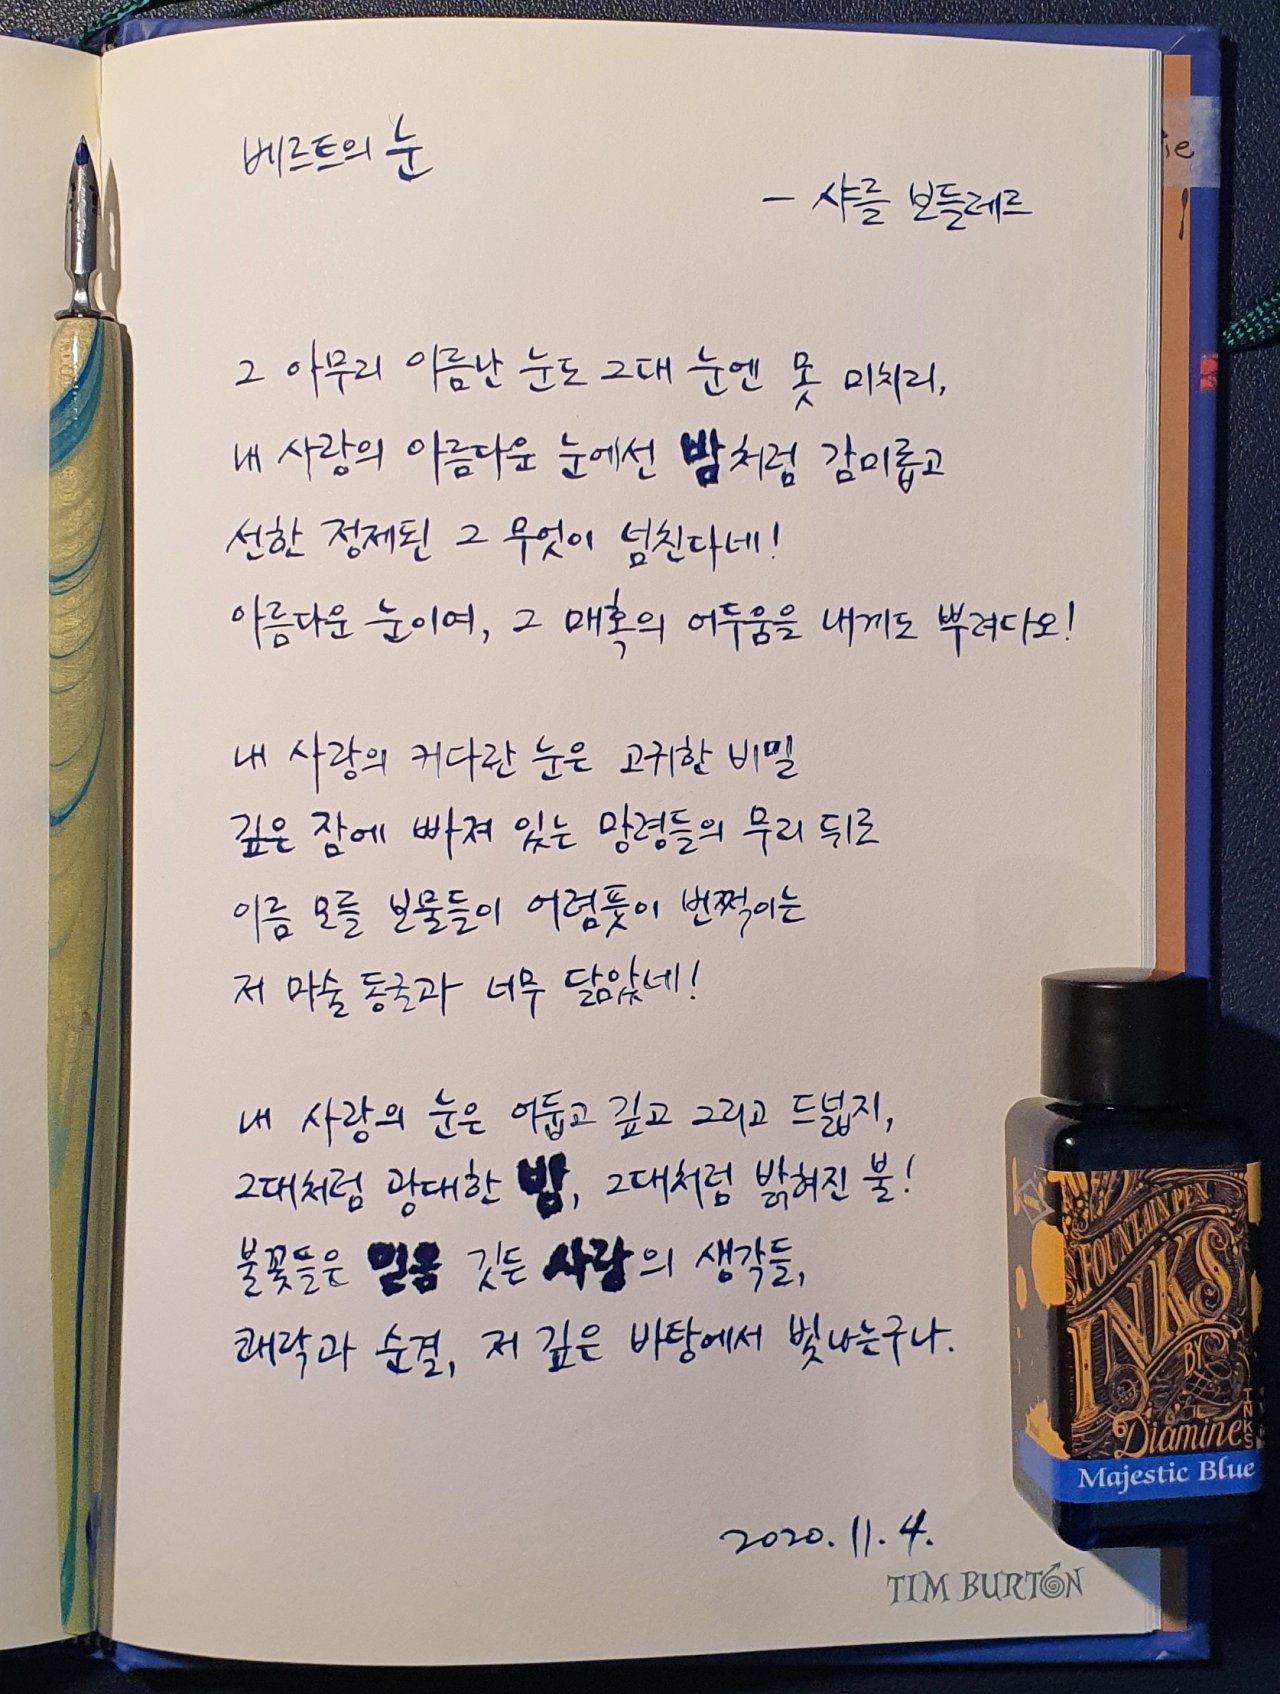 베르트의 눈
- 샤를 보들레르
그 아무리 이름난 눈도 그대 눈엔 못 미치리,
내 사랑의 아름다운 눈에선 밤처럼 감미롭고
선한 정제된 그 무엇이 넘친다네!
아름다운 눈이여, 그 매혹의 어두움을 내게도 뿌려다오!
내 사랑의 커다란 눈은 고귀한 비밀
깊은 잠에 빠져 있는 망령들의 무리 뒤로
이름 모를 보물들이 어렴풋이 번쩍이는
저 마술 동굴과 너무 닮았네!
내 사랑의 눈은 어둡고 깊고 그리고 드넓지,
그대처럼 광대한 밤, 그대처럼 밝혀진 불!
불꽃들은 믿음 깃든 사랑의 생각들,
쾌락과 순결, 저 깊은 바탕에서 빛나는구나.
2020. 11. 4.
TIM BURTON
ie
FOUNTAIN PEN
INKS
BY
Diamine
INKS
Majestic Blue